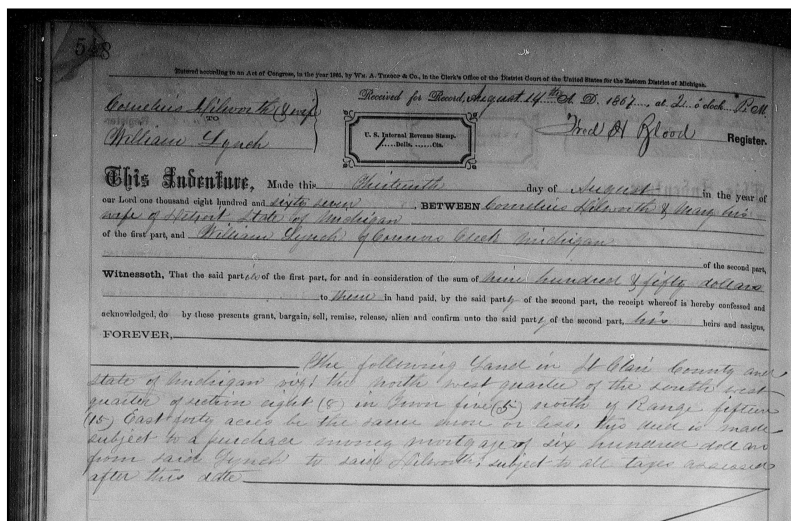 548
Entered according to an Act of Congress, in the year 1865, by Wm. A. Throop & Co., in the Clerk's Office of the District Court of the United States for the Eastern District of Michigan.
Cornelius Hilworth & wife
TO
William Lynch
Received for Record, August 14th A. D. 1867, at 2 o'clock P. M.
U. S. Internal Revenue Stamp.
1 Dolls, Cts.
Fred A Blood Register.
This Indenture, Made this day of August in the year of
our Lord one thousand eight hundred and sixty seven BETWEEN Cornelius Hilworth & Mary his
wife of Detroit State of Michigan
of the first part, and William Lynch of Connors Creek Michigan
of the second part,
Witnesseth, That the said parties of the first part, for and in consideration of the sum of nine hundred & fifty dollars
to them in hand paid, by the said party of the second part, the receipt whereof is hereby confessed and
acknowledged, do by these presents grant, bargain, sell, remise, release, alien and confirm unto the said party of the second part, his heirs and assigns,
FOREVER,
The following Land in St Clair County and
state of Michigan viz: the north west quarter of the south west
quarter of section eight (8) in Town five (5) north of Range fifteen
(15) East forty acres be the same more or less, this deed is made
subject to a purchase money mortgage of six hundred dollars
from said Lynch to said Hilworth, subject to all taxes assessed
after this date